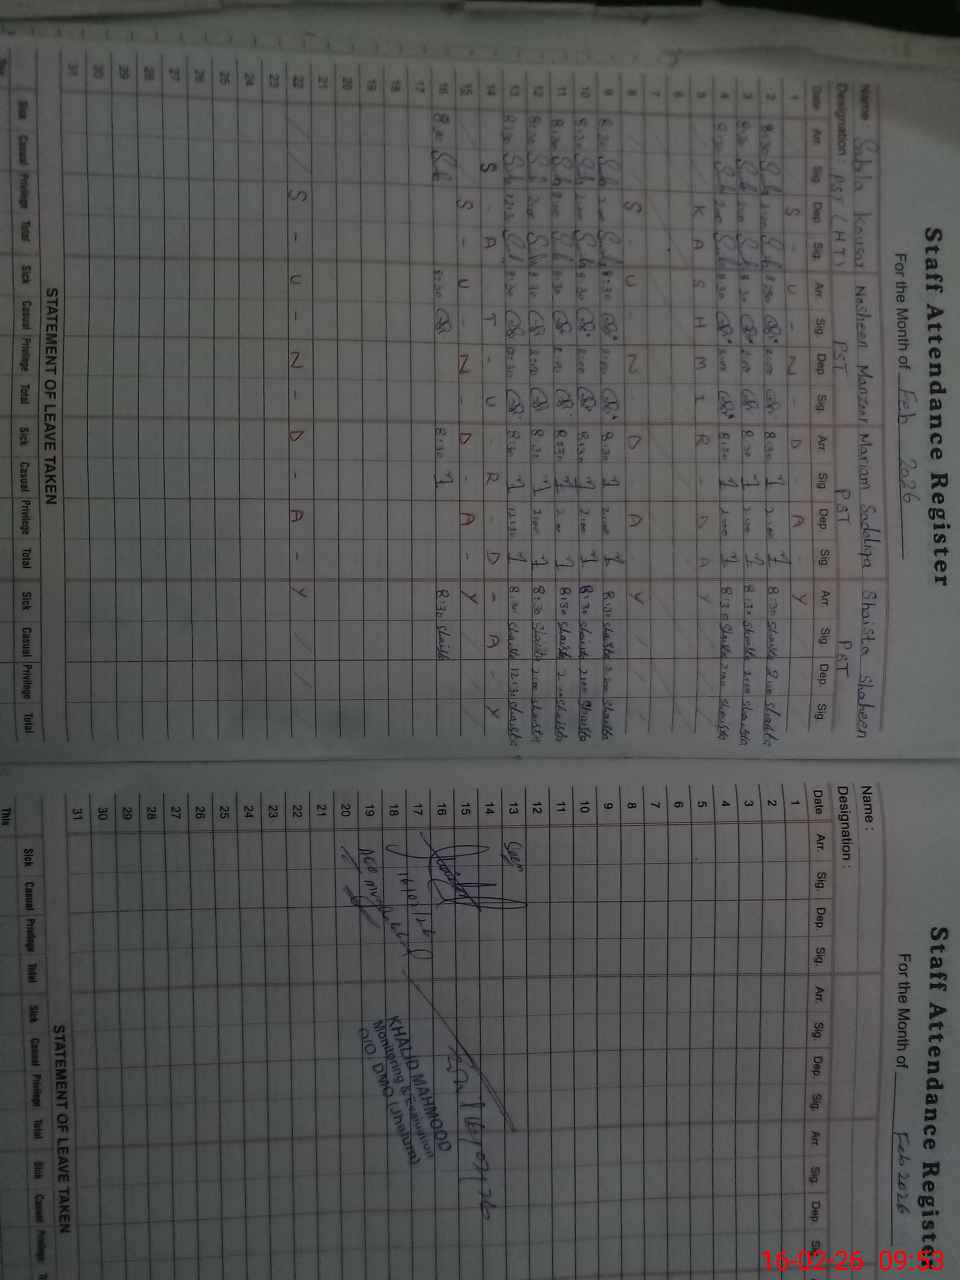 Staff Attendance Register
For the Month of Feb 2026
Name : Sabla Kousar Nosheen Manzoor Mariam Saddiqa Shaista Shaheen
Designation : PST (HT) PST PST PST
Date Arr. Sig. Dep. Sig. Arr. Sig. Dep. Sig. Arr. Sig. Dep. Sig. Arr. Sig. Dep. Sig.
1 S - U - N - D - A - Y
2 8:30 Sh 2:00 Sh 8:30 2:00 8:30 2:00 8:30 Shaista 2:00 Shaista
3 8:30 Sh 2:00 Sh 8:30 2:00 8:30 2:00 8:30 Shaista 2:00 Shaista
4 8:30 Sh 2:00 Sh 8:30 2:00 8:30 2:00 8:30 Shaista 2:00 Shaista
5 K A S H M I R - D A Y
6
7
8 S - U - N - D - A - Y
9 8:30 Sh 2:00 Sh 8:30 2:00 8:30 2:00 8:30 Shaista 2:00 Shaista
10 8:30 Sh 2:00 Sh 8:30 2:00 8:30 2:00 8:30 Shaista 2:00 Shaista
11 8:30 Sh 2:00 Sh 8:30 2:00 8:30 2:00 8:30 Shaista 2:00 Shaista
12 8:30 Sh 2:00 Sh 8:30 2:00 8:30 2:00 8:30 Shaista 2:00 Shaista
13 8:30 Sh 12:30 Sh 8:30 12:30 8:30 12:30 8:30 Shaista 12:30 Shaista
14 S - A - T - U - R - D - A - Y
15 S - U - N - D - A - Y
16 8:30 Sh 8:30 8:30 8:30 Shaista
17
18
19
20
21
22 S - U - N - D - A - Y
23
24
25
26
27
28
29
30
31
STATEMENT OF LEAVE TAKEN
Sick Casual Privilege Total Sick Casual Privilege Total Sick Casual Privilege Total Sick Casual Privilege Total
Staff Attendance Register
For the Month of Feb 2026
Name :
Designation :
Date Arr. Sig. Dep. Sig. Arr. Sig. Dep. Sig. Arr. Sig. Dep.
1
2
3
4
5
6
7
8
9
10
11
12
13
14
15
16
17 16/02/26
18
19
20
21
22
23
24
25
26
27
28
29
30
31
KHALID MAHMOOD
Monitoring & Evaluation
STATEMENT OF LEAVE TAKEN
Sick Casual Privilege Total Sick Casual Privilege Total Sick Casual Privilege
This
16-02-26 09:53